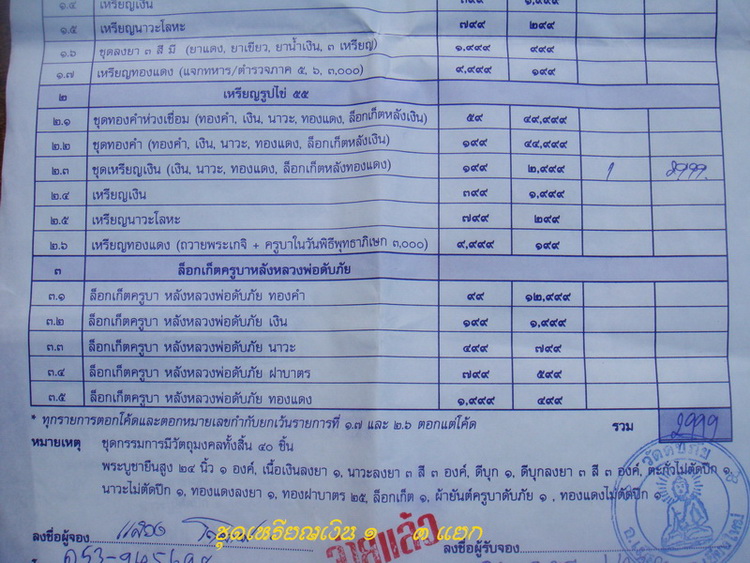 ๑.๔ เหรียญเงิน ๓๙๙ ๑,๙๙๙
๑.๕ เหรียญนาวะโลหะ ๗๙๙ ๒๙๙
๑.๖ ชุดลงยา ๓ สี มี (ยาแดง, ยาเขียว, ยาน้ำเงิน, ๓ เหรียญ) ๑,๙๙๙ ๙๙๙
๑.๗ เหรียญทองแดง (แจกทหาร/ตำรวจภาค ๕, ๖, ๓,๐๐๐) ๙,๙๙๙ ๑๙๙
๒ เหรียญรูปไข่ ๕๕
๒.๑ ชุดทองคำห่วงเชื่อม (ทองคำ, เงิน, นาวะ, ทองแดง, ล็อกเก็ตหลังเงิน) ๕๙ ๔๙,๙๙๙
๒.๒ ชุดทองคำ (ทองคำ, เงิน, นาวะ, ทองแดง, ล็อกเก็ตหลังเงิน) ๑๙๙ ๔๔,๙๙๙
๒.๓ ชุดเหรียญเงิน (เงิน, นาวะ, ทองแดง, ล็อกเก็ตหลังทองแดง) ๑๙๙ ๒,๙๙๙ 1 2999.
๒.๔ เหรียญเงิน ๓๙๙ ๑,๙๙๙
๒.๕ เหรียญนาวะโลหะ ๗๙๙ ๒๙๙
๒.๖ เหรียญทองแดง (ถวายพระเกจิ + ครูบาในวันพิธีพุทธาภิเษก ๓,๐๐๐) ๙,๙๙๙ ๑๙๙
๓ ล็อกเก็ตครูบาหลังหลวงพ่อดับภัย
๓.๑ ล็อกเก็ตครูบา หลังหลวงพ่อดับภัย ทองคำ ๙๙ ๑๒,๙๙๙
๓.๒ ล็อกเก็ตครูบา หลังหลวงพ่อดับภัย เงิน ๑๙๙ ๑,๙๙๙
๓.๓ ล็อกเก็ตครูบา หลังหลวงพ่อดับภัย นาวะ ๔๙๙ ๗๙๙
๓.๔ ล็อกเก็ตครูบา หลังหลวงพ่อดับภัย ฝาบาตร ๗๙๙ ๕๙๙
๓.๕ ล็อกเก็ตครูบา หลังหลวงพ่อดับภัย ทองแดง ๑,๙๙๙ ๔๙๙
* ทุกรายการตอกโค้ดและตอกหมายเลขกำกับยกเว้นรายการที่ ๑.๗ และ ๒.๖ ตอกแต่โค้ด รวม 2999
หมายเหตุ ชุดกรรมการมีวัตถุมงคลทั้งสิ้น ๔๐ ชิ้น
พระบูชายืนสูง ๒๔ นิ้ว ๑ องค์, เนื้อเงินลงยา ๑, นาวะลงยา ๓ สี ๓ องค์, ดีบุก ๑, ดีบุกลงยา ๓ สี ๓ องค์, ตะกั่วไม่ตัดปีก ๑
นาวะไม่ตัดปีก ๑, ทองแดงลงยา ๑, ทองฝาบาตร ๒๕, ล็อกเก็ต ๑, ผ้ายันต์ครูบาดับภัย ๑ , ทองแดงไม่ตัดปีก ๑
ลงชื่อผู้จอง ชุดเหรียญเงิน ๑ ๓ แยก ลงชื่อผู้รับจอง
จ่ายแล้ว
วัดดับภัย